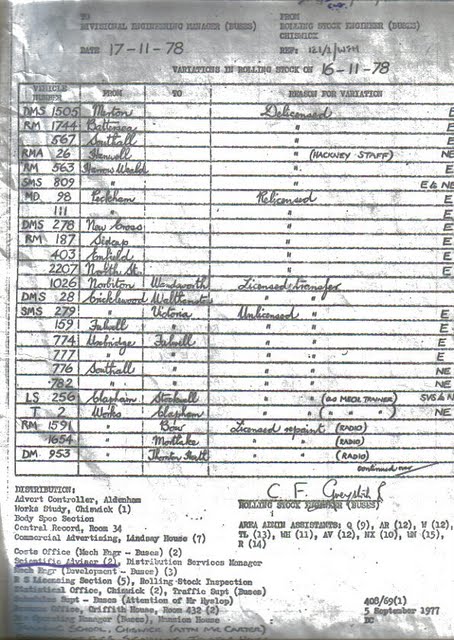 TO
FROM
DIVISIONAL ENGINEERING MANAGER (BUSES)
ROLLING STOCK ENGINEER (BUSES)
CHISWICK
DATE 17-11-78
REF:
VARIATIONS IN ROLLING STOCK ON 16-11-78
VEHICLE NUMBER FROM TO REASON FOR VARIATION
DMS 1505 Merton Delicensed E
RM 1744 Battersea " E
567 Southall " E
RMA 26 Hanwell " (HACKNEY STAFF) NE
RM 563 Harrow Weald " E
SMS 809 " " E & NE
MD 98 Peckham Relicensed E
111 " " E
DMS 278 New Cross " E
RM 187 Sidcup " E
403 Enfield " E
2207 North St. " E
1026 Norbiton Wandsworth Licensed transfer
DMS 28 Cricklewood Walthamstow " "
SMS 279 " Victoria Unlicensed " E
159 Fulwell " " " E
774 Uxbridge Fulwell " " E
777 " " " " E
776 Southall " " " NE
782 " " " " NE
LS 256 Clapham Stockwell " " (as MECH TRAINER) SVS & N
T 2 Works Clapham " " ( " " ) NE
RM 1591 " Bow Licensed repaint (RADIO)
1654 " Mortlake " " (RADIO)
DM 953 " Thornton Heath " " (RADIO)
continued over
DISTRIBUTION:
Advert Controller, Aldenham
Works Study, Chiswick (1)
Body Spec Section
Central Record, Room 34
Commercial Advertising, Lindsay House (7)
ROLLING STOCK ENGINEER (BUSES)
AREA ADMIN ASSISTANTS: Q (9), AR (12), W (12),
TL (13), WH (11), AV (12), NX (10), UN (15),
R (14)
Costs Office (Mech Engr - Buses) (2)
Scientific Advisor (2), Distribution Services Manager
Mech Engr (Development - Buses) (3)
R S Licensing Section (5), Rolling Stock Inspection
Statistical Office, Chiswick (2), Traffic Supt (Buses)
Supt - Buses (Attention of Mr Hyslop)
Office, Griffith House, Room 432 (2)
Operating Manager (Buses), Mansion House
SCHOOL, CHISWICK (ATTN MR CARTER)
400/69(1)
5 September 1977
DC